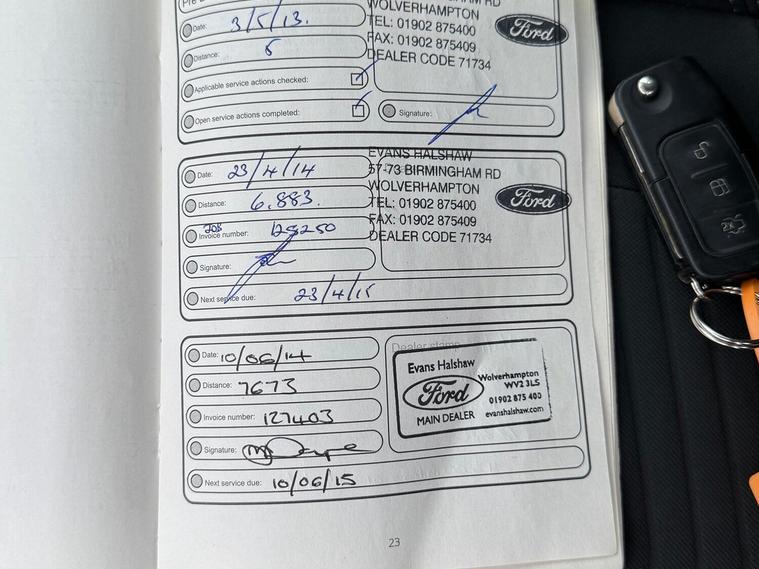 WOLVERHAMPTON
Date: 3/5/13.
TEL: 01902 875400
Ford
Distance: 6
FAX: 01902 875409
DEALER CODE 71734
Applicable service actions checked:
Open service actions completed:
Signature:
EVANS HALSHAW
Date: 23/4/14
57-73 BIRMINGHAM RD
WOLVERHAMPTON
Distance: 6.883.
TEL: 01902 875400
Ford
Invoice number:
FAX: 01902 875409
DEALER CODE 71734
Signature:
Next service due: 23/4/15
Date: 10/06/14
Dealer stamp
Evans Halshaw
Ford
MAIN DEALER
Wolverhampton
WV2 3LS
01902 875 400
evanshalshaw.com
Distance: 7673
Invoice number: 127403
Signature:
Next service due: 10/06/15
23